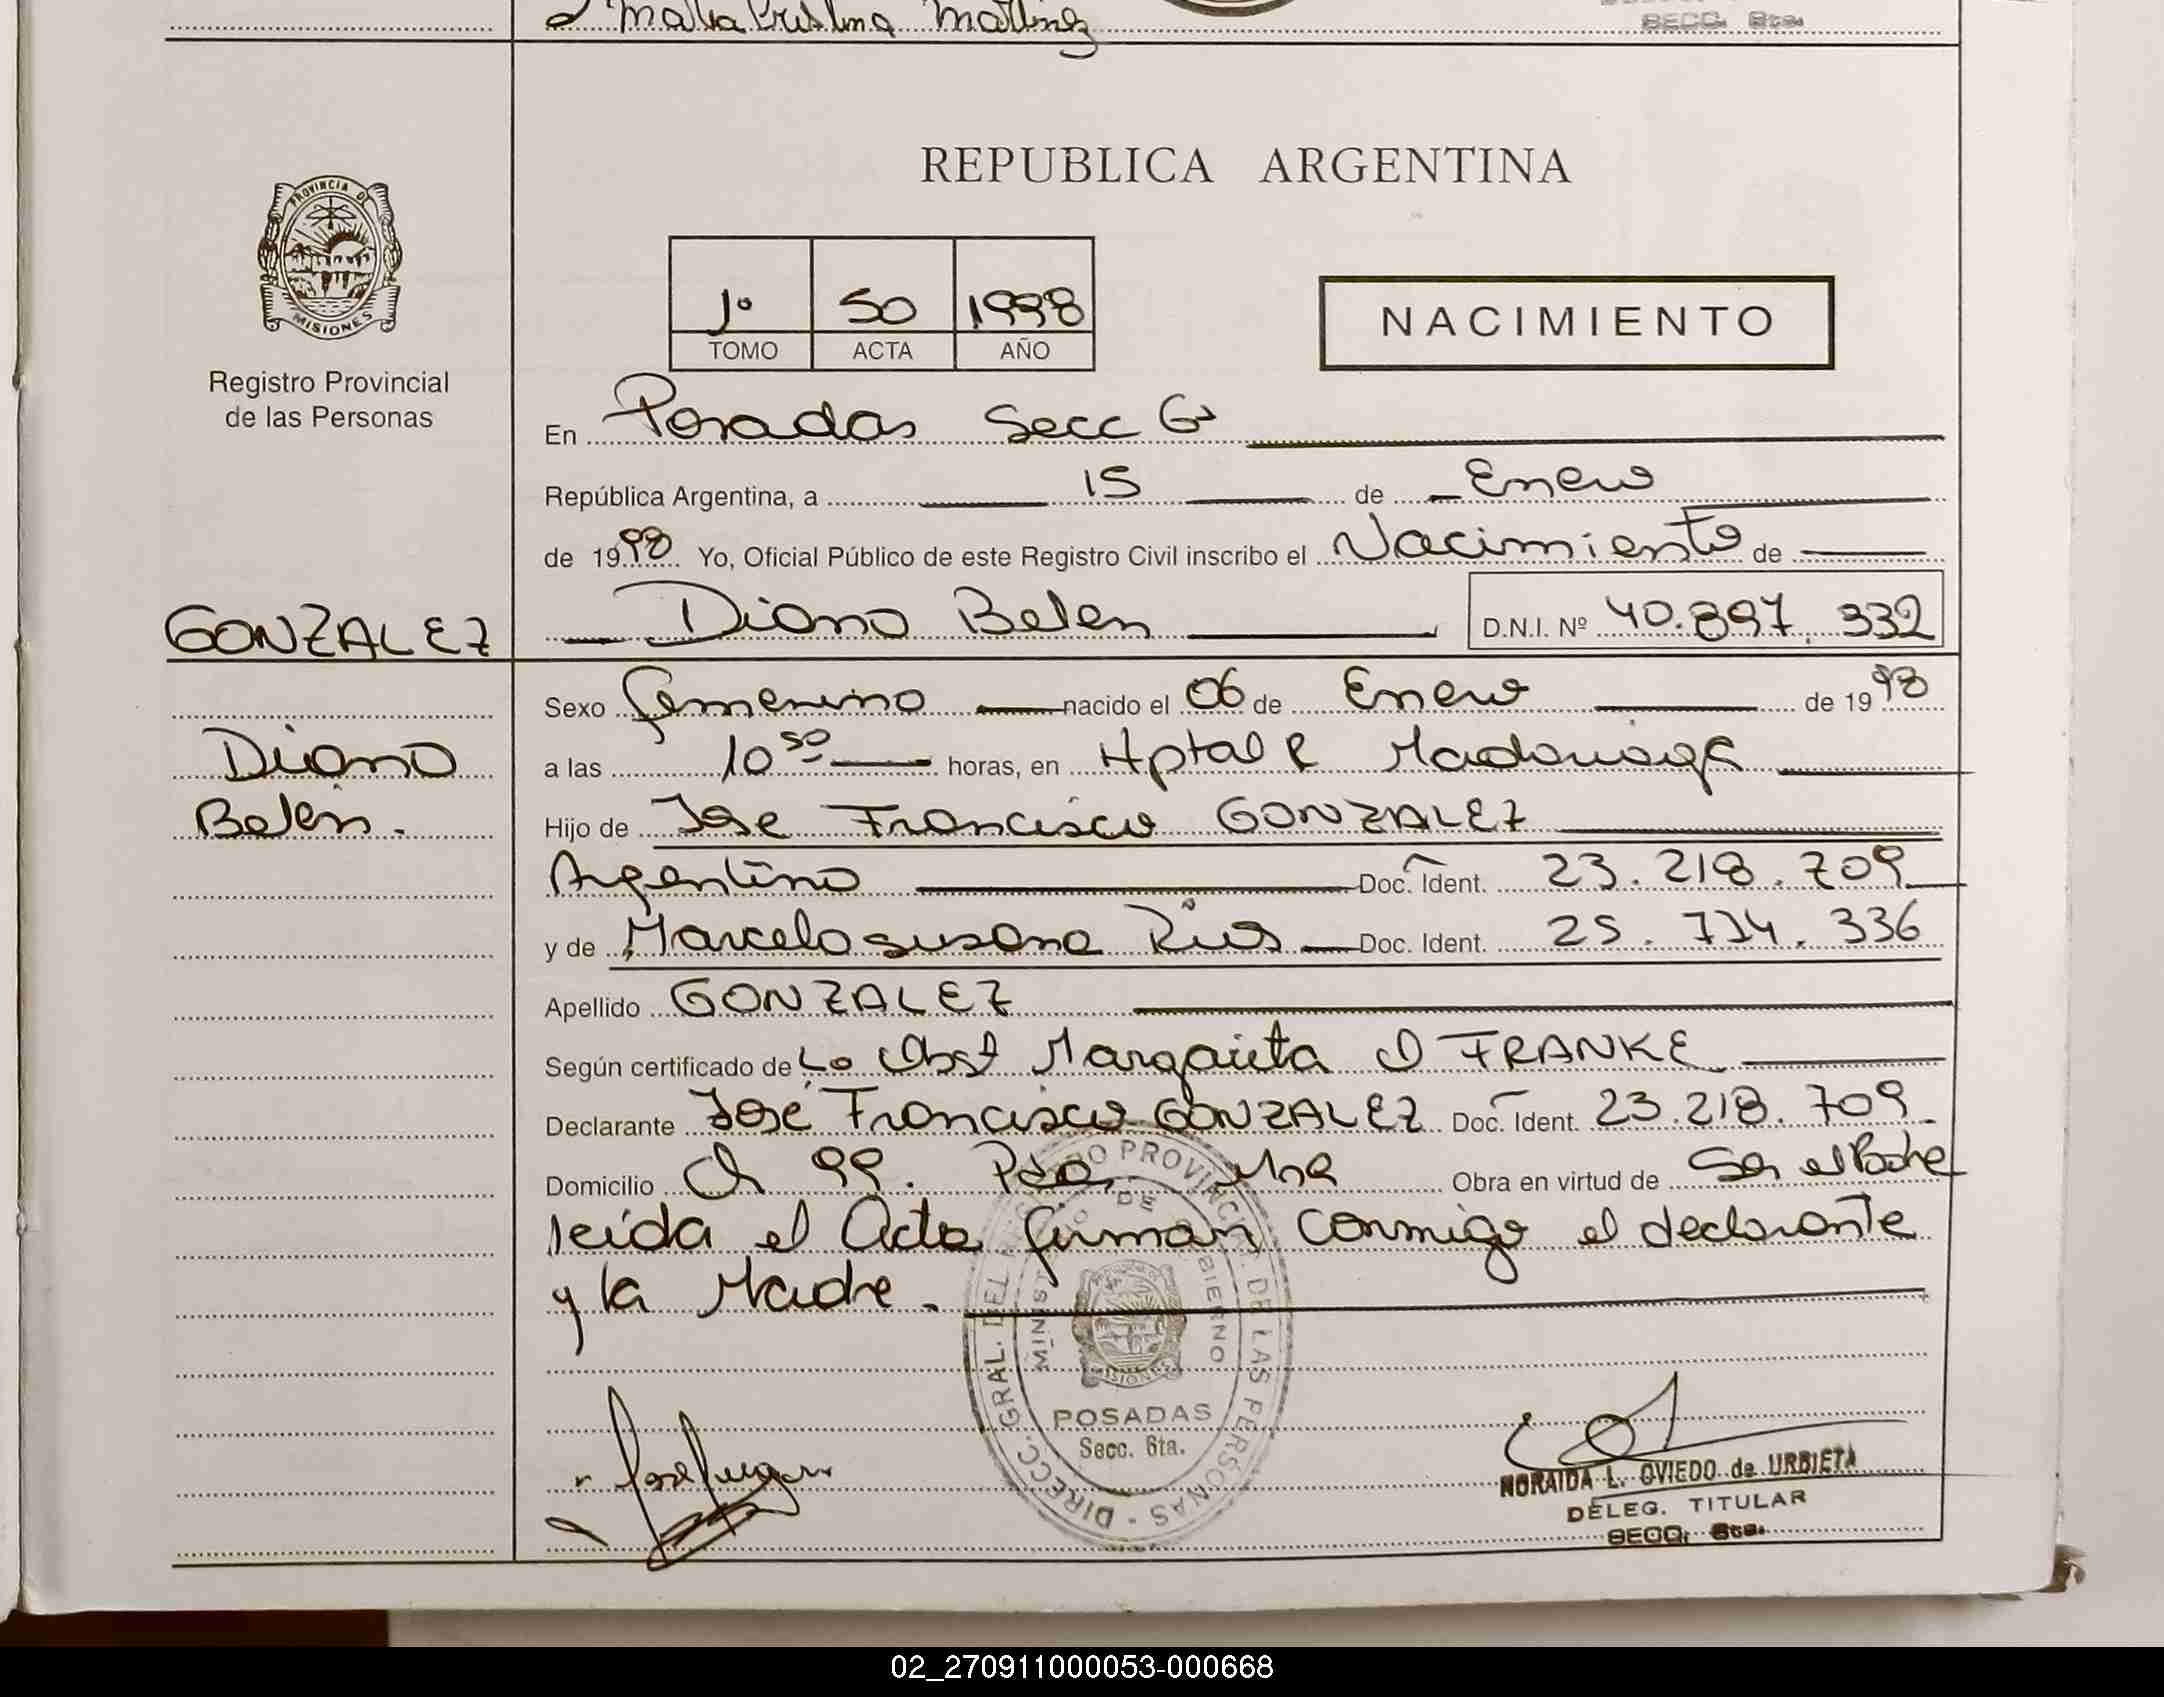 Maria Cristina Martinez
SECC. 6ta.
PROVINCIA DE
MISIONES
Registro Provincial
de las Personas
REPUBLICA ARGENTINA
1º 50 1998
TOMO ACTA AÑO
NACIMIENTO
En Posadas Secc 6ª
República Argentina, a 15 de Enero
de 1998 Yo, Oficial Público de este Registro Civil inscribo el Nacimiento de
GONZALEZ Diana Belen D.N.I. Nº 40.897.332
Sexo femenino nacido el 06 de Enero de 1998
Diana
a las 10 50 horas, en Hptal R Madariaga
Belén.
Hijo de Jose Francisco GONZALEZ
Argentino Doc. Ident. 23.218.709
y de Marcela Susana Rios Doc. Ident. 25.714.336
Apellido GONZALEZ
Según certificado de La Obst Margarita FRANKE
Declarante José Francisco GONZALEZ Doc. Ident. 23.218.709
Domicilio Ch 99. Pdas. Mnes Obra en virtud de Ser el Padre
leida el Acta firman conmigo el declarante
y la Madre.
DIRECC. GRAL. DEL REGISTRO PROVINCIAL DE LAS PERSONAS
MINISTERIO DE GOBIERNO
MISIONES
POSADAS
Secc. 6ta.
NORAIDA L. OVIEDO de URBIETA
DELEG. TITULAR
SECC. 6ta.
02_270911000053-000668